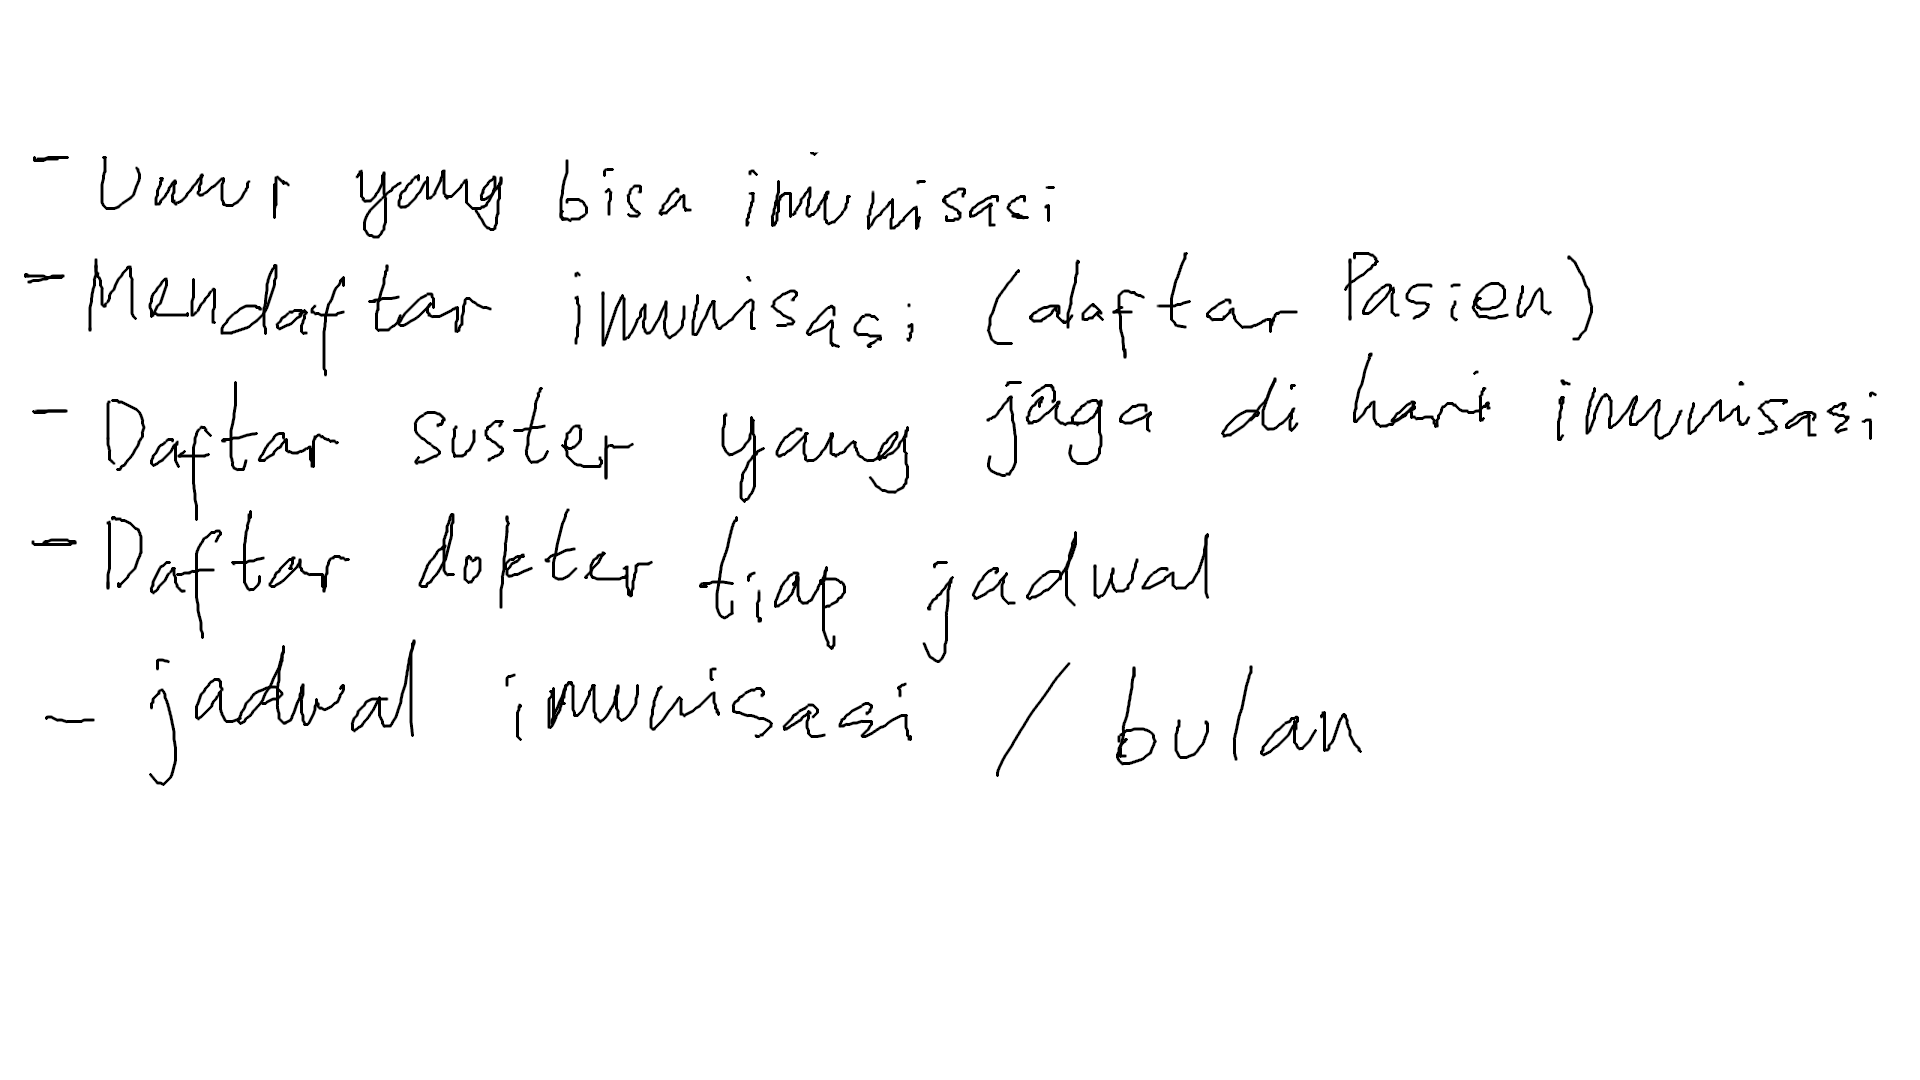 - Umur yang bisa imunisasi
- Mendaftar imunisasi (daftar Pasien)
- Daftar suster yang jaga di hari imunisasi
- Daftar dokter tiap jadwal
- jadwal imunisasi / bulan